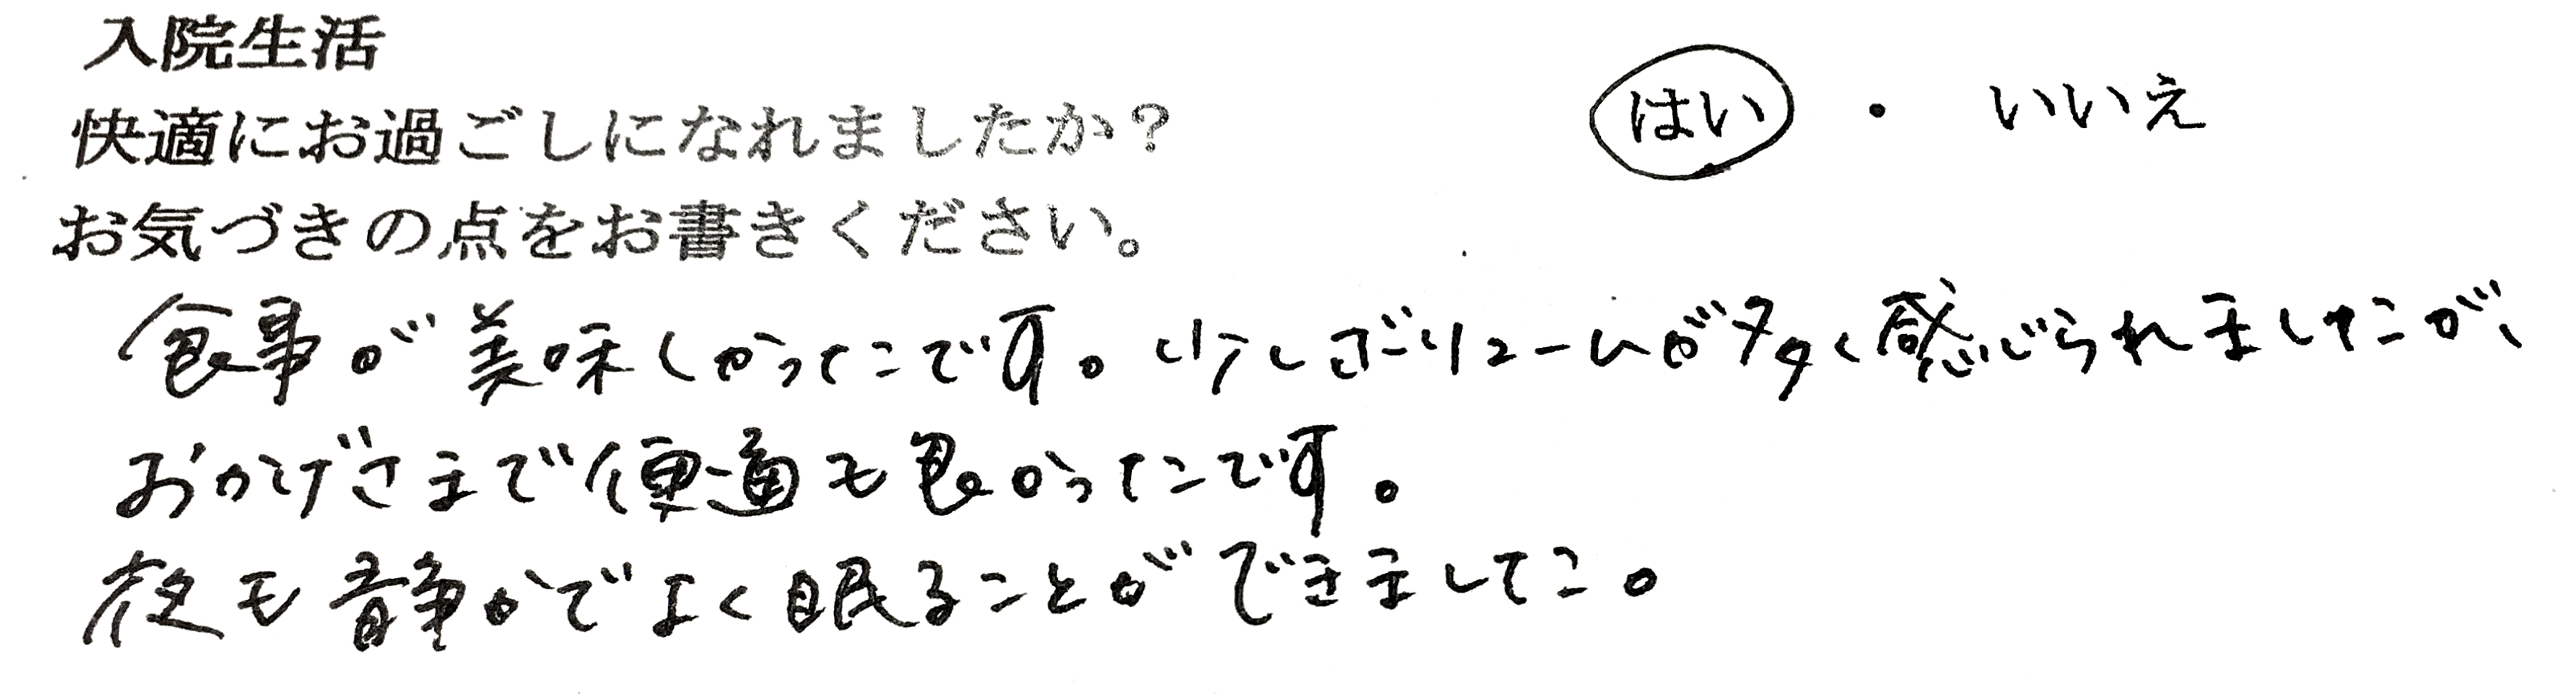 入院生活
快適にお過ごしになれましたか? はい ・ いいえ
お気づきの点をお書きください。
食事が美味しかったです。少しボリュームが多く感じられましたが、
おかげさまで便通も良かったです。
夜も静かでよく眠ることができました。